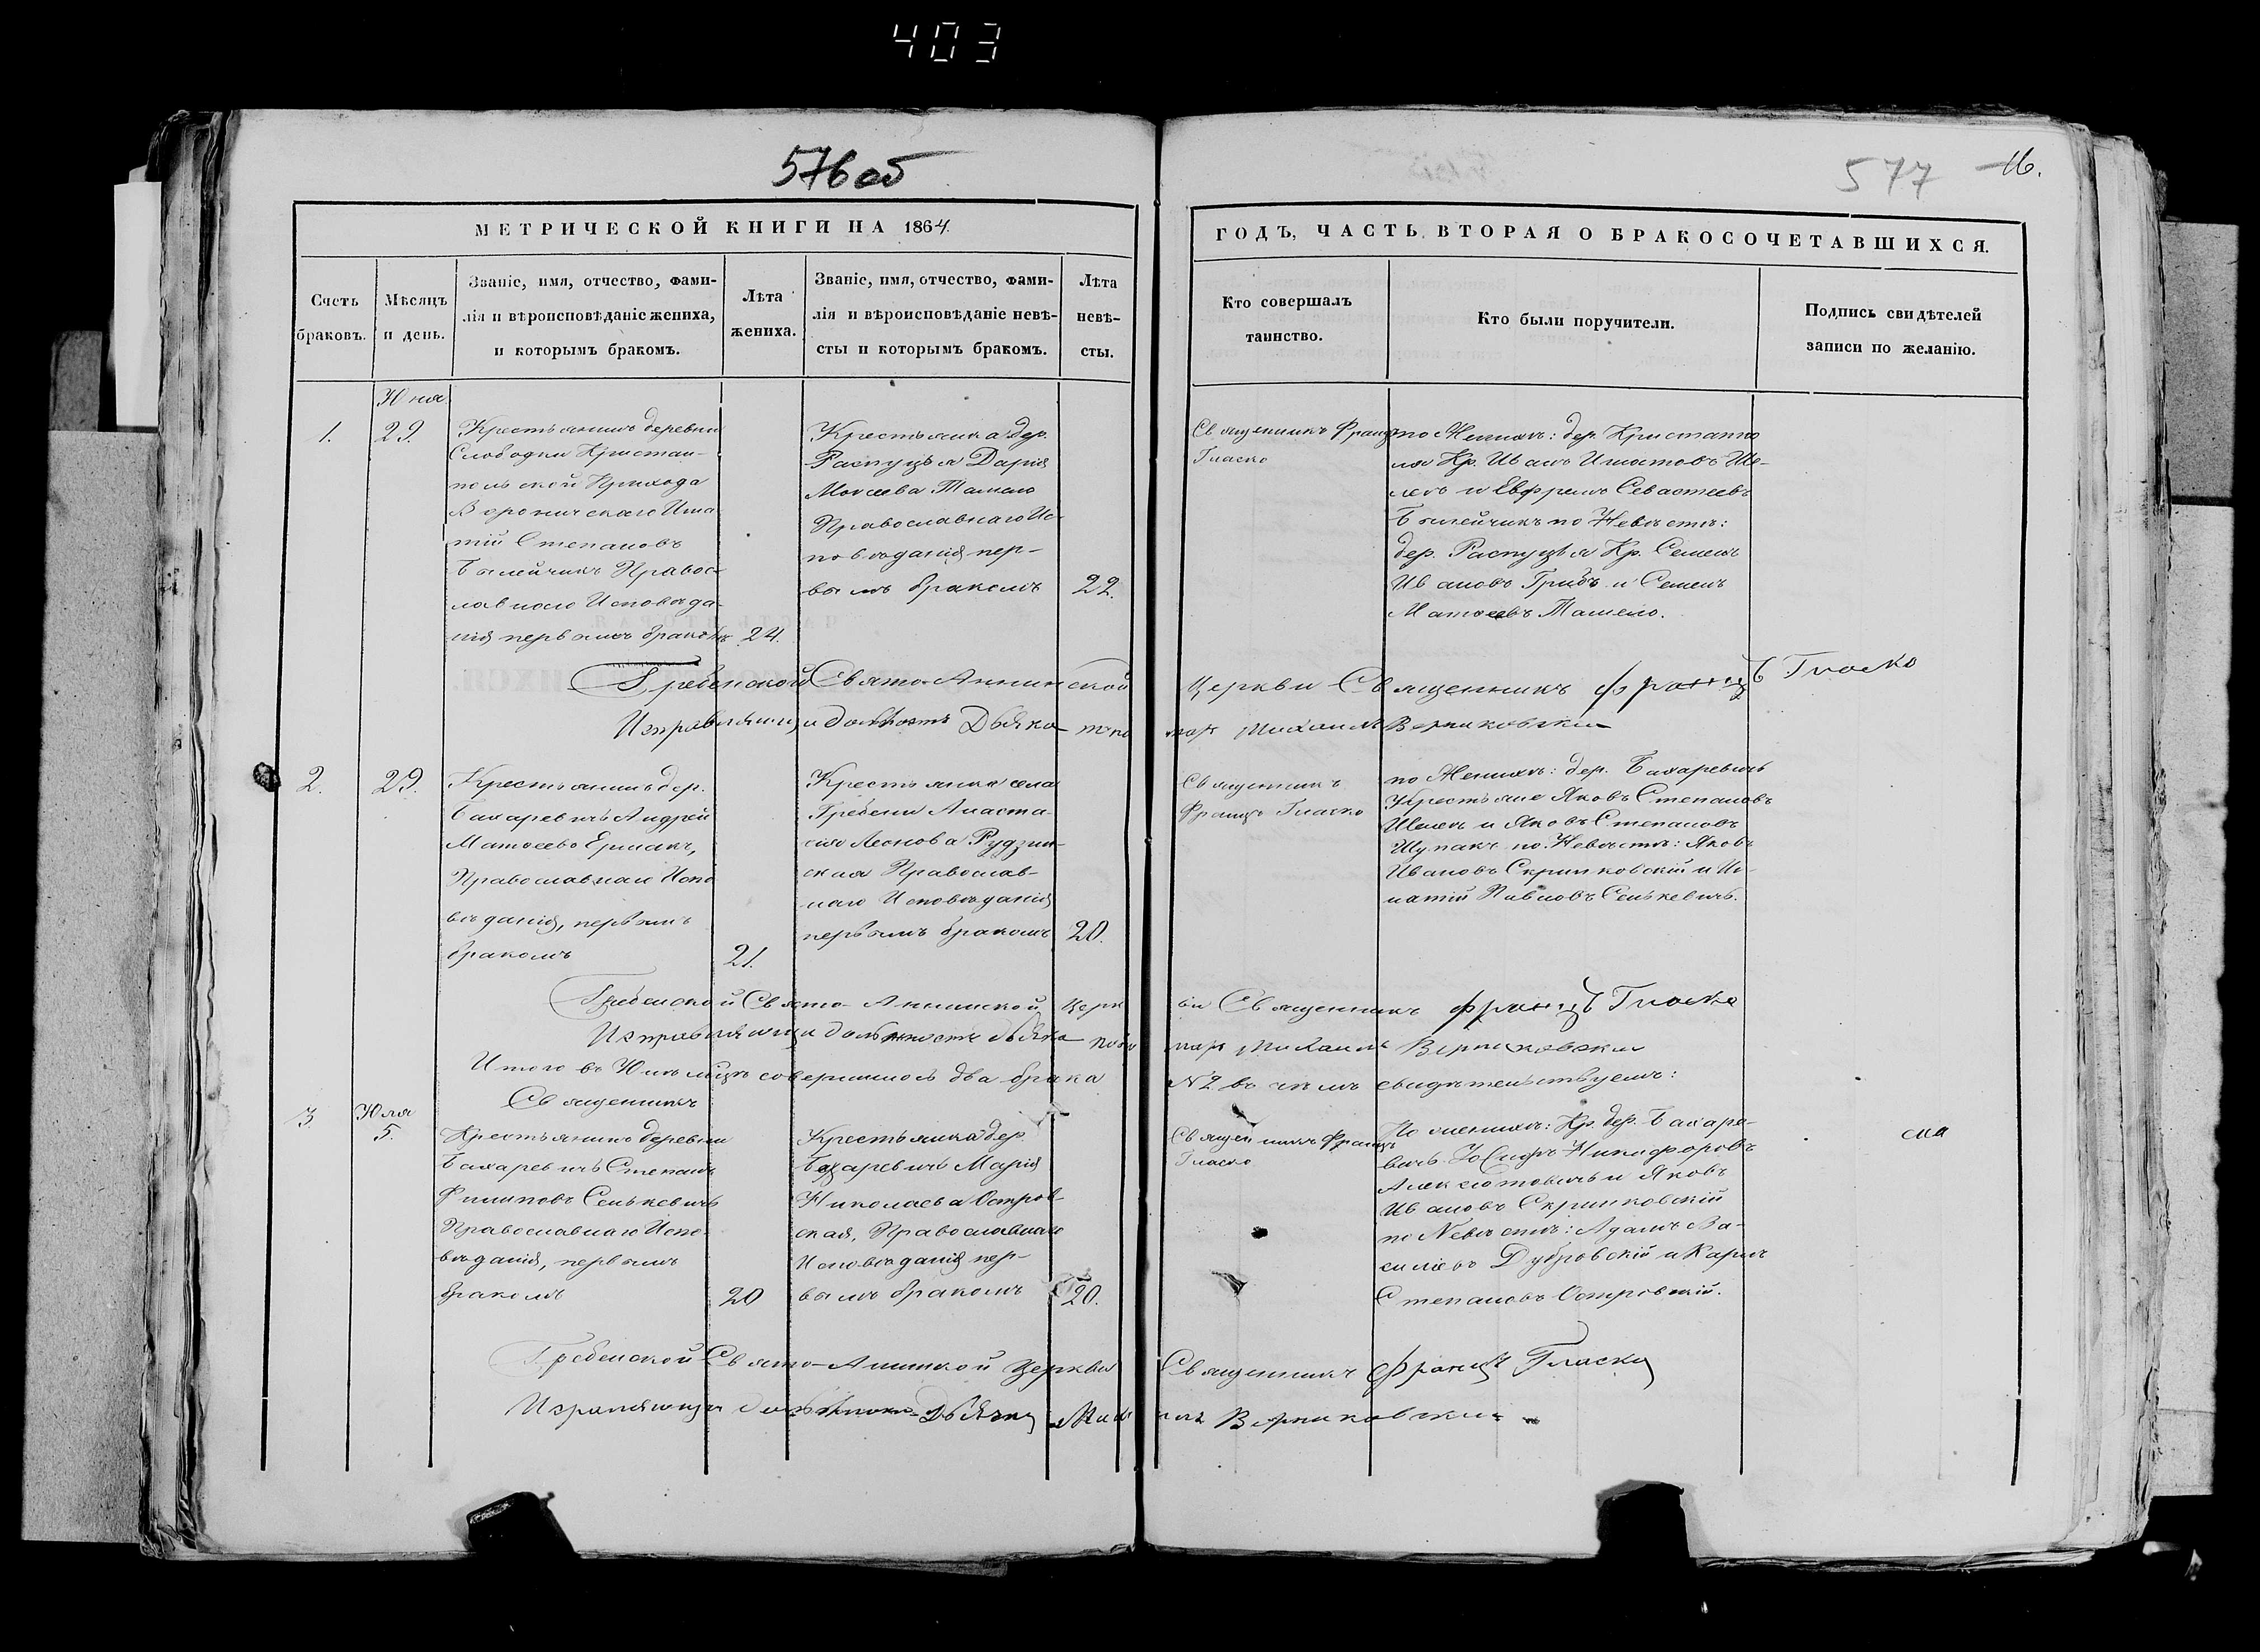 403
576 об
577
16.
МЕТРИЧЕСКОЙ КНИГИ НА 1864.
ГОДЪ, ЧАСТЬ ВТОРАЯ О БРАКОСОЧЕТАВШИХСЯ.
Счетъ
браковъ.
Мѣсяцъ
и день.
Званіе, имя, отчество, фами-
лія и вѣроисповѣданіе жениха,
и которымъ бракомъ.
Лѣта
жениха.
Званіе, имя, отчество, фами-
лія и вѣроисповѣданіе невѣ-
сты и которымъ бракомъ.
Лѣта
невѣ-
сты.
Кто совершалъ
таинство.
Кто были поручители.
Подпись свидѣтелей
записи по желанію.
Юня
1.
29.
Крестьянинъ деревни
Слободки Кристан-
польской Прихода
Игна
тій Степановъ
Былейчикъ Правос-
лавнаго Исповѣда-
нія первымъ бракомъ
24.
Крестьянка дер.
Распуцья Дарія
Моисеева
Православнаго Ис-
повѣданія пер-
вымъ бракомъ
22.
Священникъ Францъ
Гласко
по Женихѣ: дер.
Кр. Иванъ Игнатовъ Ше-
и Ефремъ Севастеевъ
Былейчикъ по Невѣстѣ:
дер. Распуцья Кр. Семенъ
Ивановъ Грибъ и Семенъ
Матѳеевъ
Гребенской Свято-Аннинской Церкви Священникъ Францъ Гласко
Михаилъ Верниковски
2.
29.
Крестьянинъ дер.
Бахаревичъ Андрей
Матѳеевъ Ермакъ,
Православнаго Испо
вѣданія, первымъ
бракомъ
21.
Крестьянка села
Гребени Анаста
сія Леонова Рудзин-
ская Православ-
наго Исповѣданія
первымъ бракомъ
20.
Священникъ
Францъ Гласко
по Женихѣ: дер. Бахаревичъ
Крестьяне Яковъ Степановъ
и Яковъ Степановъ
Шупакъ по Невѣстѣ: Яковъ
Ивановъ Скринковскій и Иг-
натій Павловъ Сенькевичъ.
Гребенской Свято-Аннинской Церкви Священникъ Францъ Гласко
Михаилъ Верниковски
Итого въ Юнѣ мцѣ совершилось два брака № 2 въ чемъ свидѣтельствуемъ:
Священникъ
3
Юля
5.
Крестьянинъ деревни
Бахаревичъ Степанъ
Филиповъ Сенькевичъ
Православнаго Испо-
вѣданія, первымъ
бракомъ
20
Крестьянка дер.
Бахаревичъ Марія
Николаева Остров-
ская, Православнаго
Исповѣданія пер-
вымъ бракомъ
20.
Священникъ Францъ
Гласко
По женихѣ: Кр. дер. Бахаре-
вичъ Никифоровъ
и Яковъ
Ивановъ Скринковскій
по Невѣстѣ: Адамъ Ва-
сильевъ Дубровскій и Карпъ
Степановъ Островскій.
Гребенской Свято-Аннинской Церкви Священникъ Францъ Гласко
Верниковски